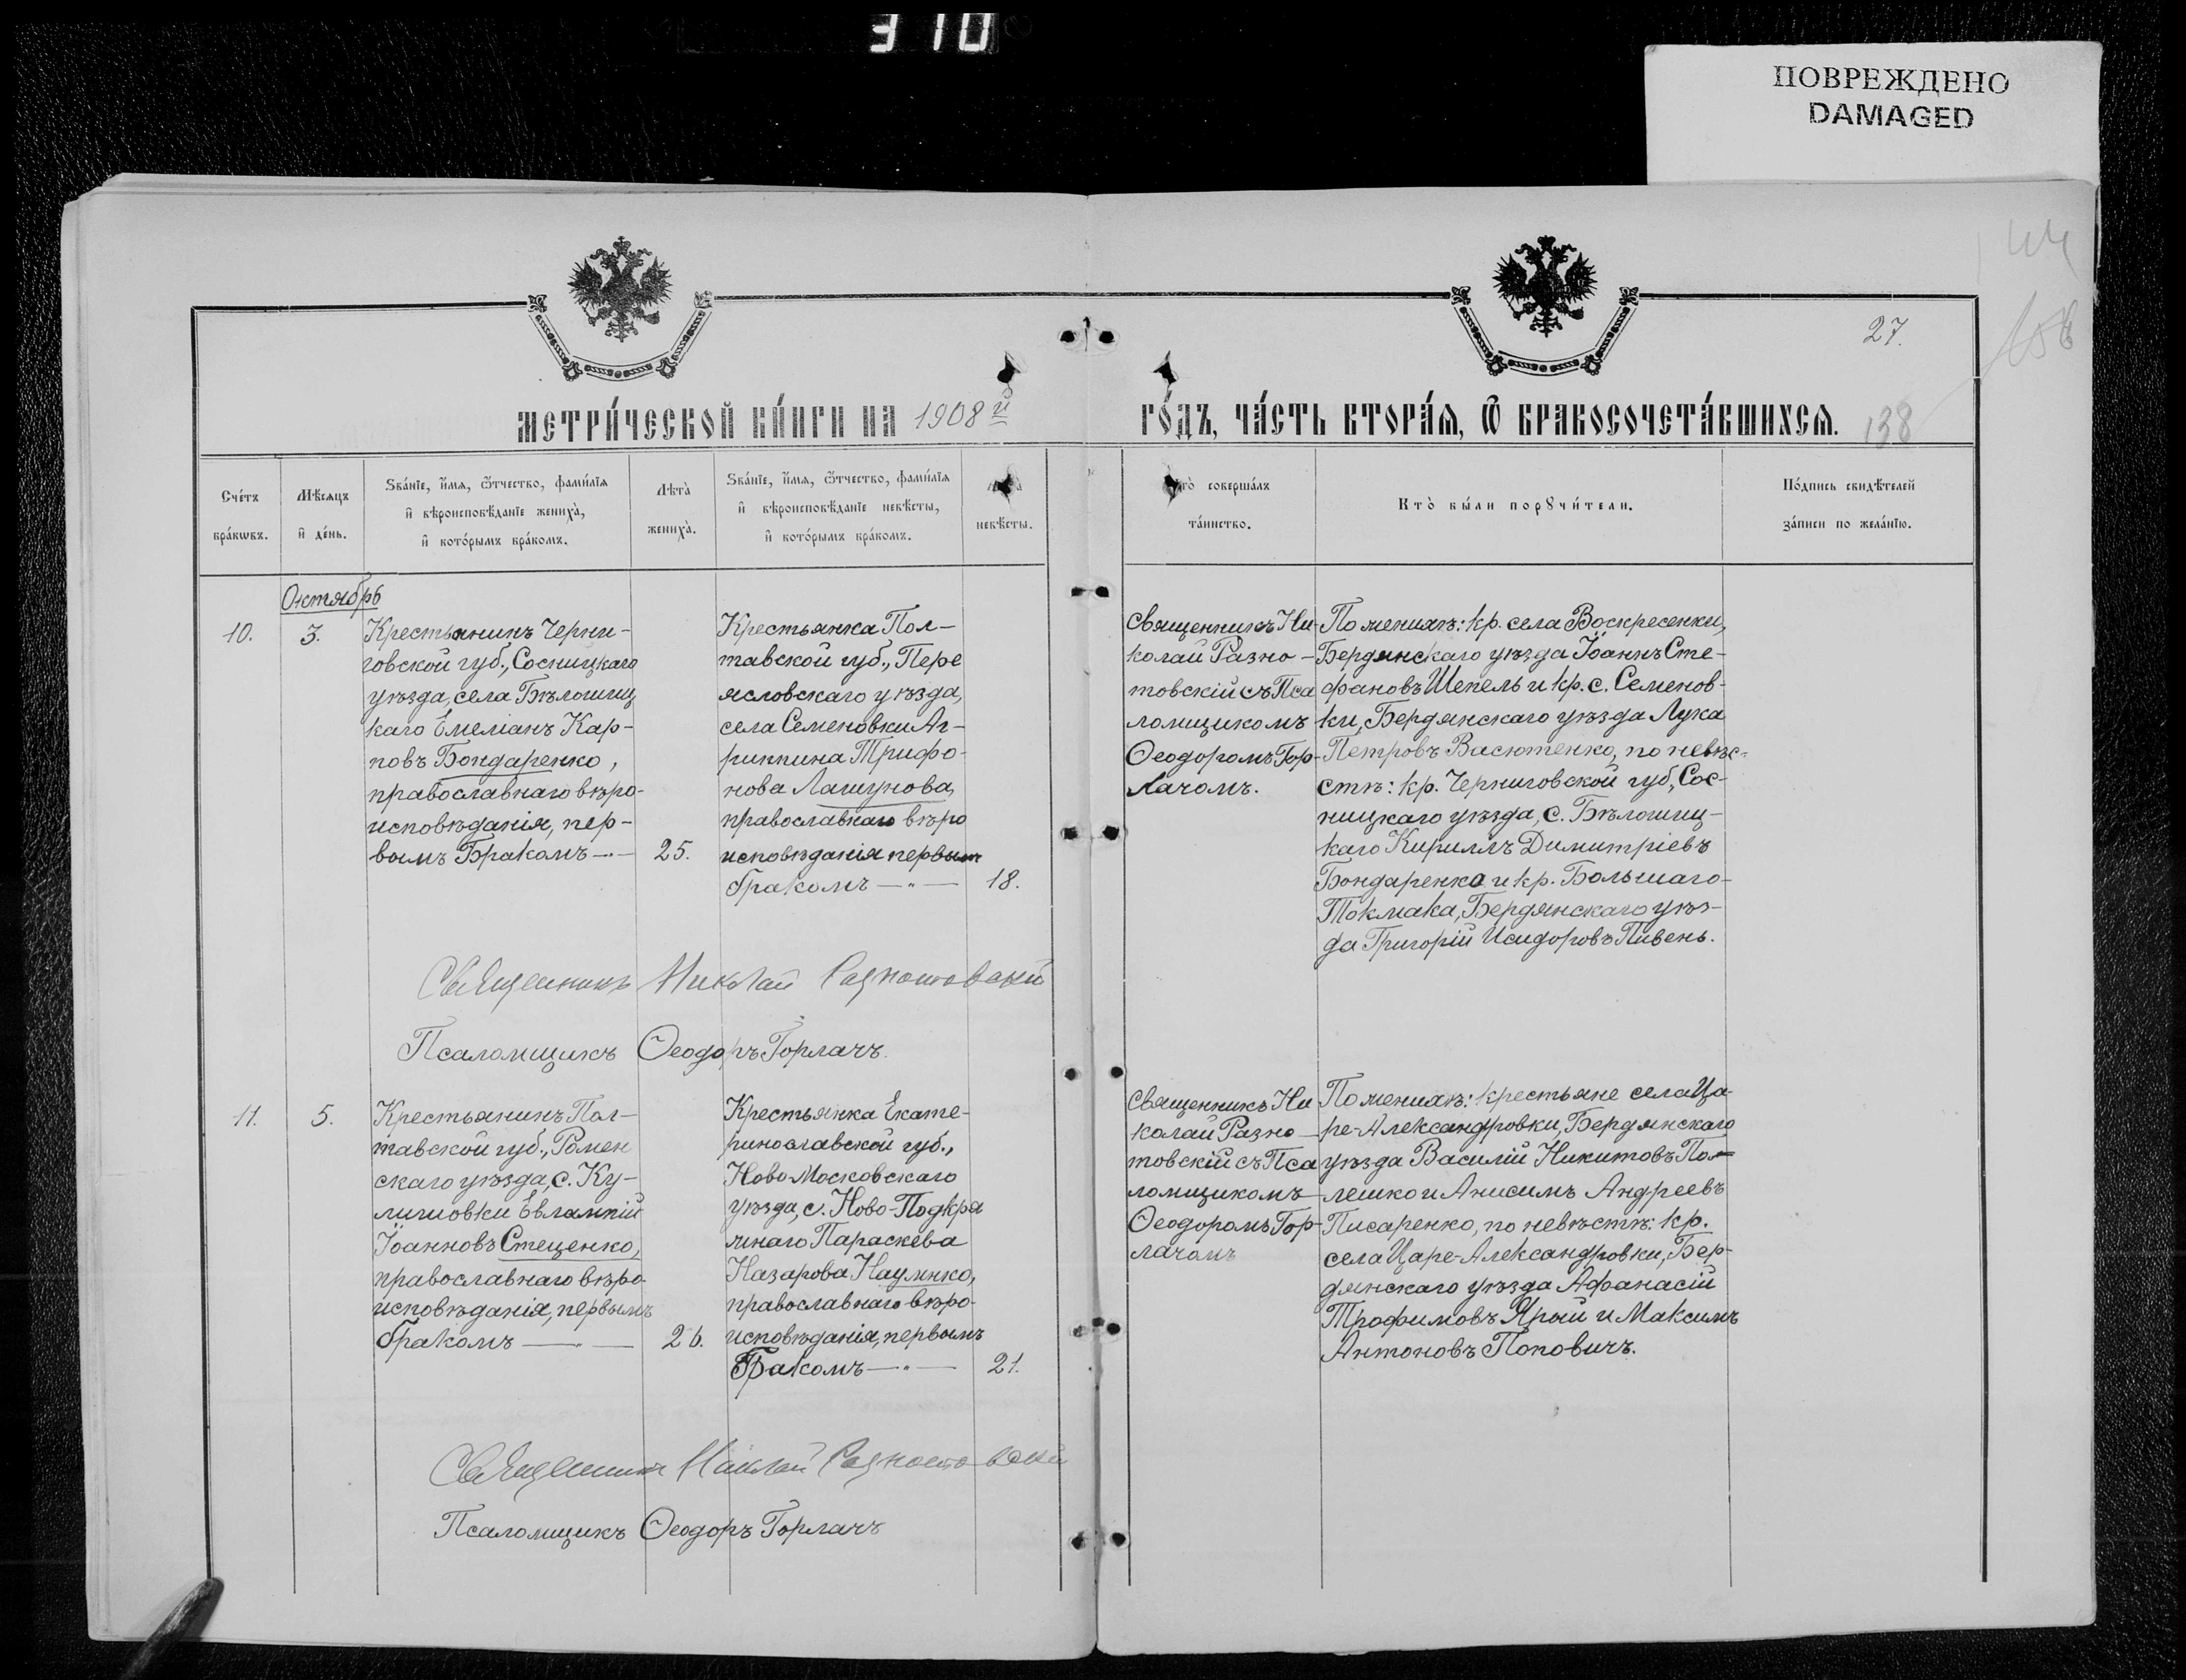 310
ПОВРЕЖДЕНО
DAMAGED
27.
138
МЕТРИ́ЧЕСКОЙ КНИ́ГИ НА 1908й
ГО́ДЪ, ЧА́СТЬ ВТОРА́Я, Ѿ БРАКОСОЧЕТА́ВШИХСЯ.
Сче́тъ
бра́кωвъ.
Мѣ́сяцъ
и҆ де́нь.
Ѕва́нїе, и҆́мя, ѻ҆́тчество, фами́лїя
и҆ вѣроисповѣ́данїе жениха̀,
и҆ кото́рымъ бра́комъ.
Лѣта̀
жениха̀.
Ѕва́нїе, и҆́мя, ѻ҆́тчество, фами́лїя
и҆ вѣроисповѣ́данїе невѣ́сты,
и҆ кото́рымъ бра́комъ.
невѣ́сты.
соверша́лъ
та́инство.
Кто̀ бы́ли порꙋчи́тели.
По́дпись свидѣ́телей
за́писи по жела́нїю.
Октябрь
10.
3.
Крестьянинъ Черни-
говской губ., Сосницкаго
уѣзда, села Бѣлошиц
каго Емеліанъ Кар-
повъ Бондаренко,
православнаго вѣро-
исповѣданія, пер-
вымъ Бракомъ —"—
25.
Крестьянка Пол-
тавской губ., Пере
ясловскаго уѣзда,
села Семеновки Аг-
риппина Трифо-
нова Лашунова,
православнаго вѣро
исповѣданія первым
бракомъ —"—
18.
Священникъ Ни-
колай Разно-
товскій съ Пса
ломщикомъ
Ѳеодоромъ Гор-
лачомъ.
По женихѣ: кр. села Воскресенки,
Бердянскаго уѣзда Іоаннъ Сте-
фановъ Шепель и кр. с. Семенов-
ки, Бердянскаго уѣзда Лука
Петровъ Васютенко, по невѣс-
стѣ: кр. Черниговской губ., Сос-
ницкаго уѣзда, с. Бѣлошиц-
каго Кириллъ Димитріевъ
Бондаренко и кр. Большаго-
Токмака, Бердянскаго уѣз-
да Григорій Исидоровъ Пивень.
Священникъ Николай Разнотовскій
Псаломщикъ Ѳеодоръ Горлачъ.
11.
5.
Крестьянинъ Пол-
тавской губ., Ромен
скаго уѣзда, с. Ку-
лишовки Евлампій
Іоанновъ Стеценко,
православнаго вѣро-
исповѣданія, первымъ
бракомъ —"—
26.
Крестьянка Екате-
ринославской губ.,
Ново-Московскаго
уѣзда, с. Ново-Подкря
жнаго Параскева
Назарова Науменко,
православнаго вѣро-
исповѣданія, первымъ
Бракомъ —"—
21.
Священникъ Ни
колай Разно-
товскій съ Пса
ломщикомъ
Ѳеодоромъ Гор-
лачомъ
По женихѣ: крестьяне села Ца-
ре-Александровки, Бердянскаго
уѣзда Василій Никитовъ По-
лешко и Анисимъ Андреевъ
Писаренко, по невѣстѣ: кр.
села Царе-Александровки, Бер-
дянскаго уѣзда Афанасій
Трофимовъ Ярый и Максимъ
Антоновъ Поповичъ.
Священникъ Николай Разнотовскій
Псаломщикъ Ѳеодоръ Горлачъ